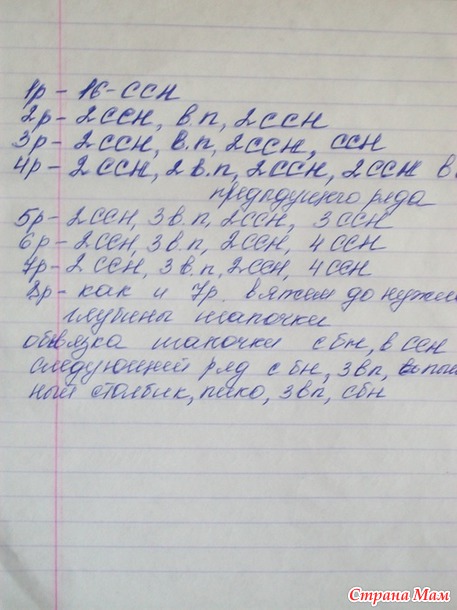 1р - 16-ССН
2р - 2ССН, в.п, 2ССН
3р - 2ССН, в.п, 2ССН, ССН
4р - 2ССН, 2в.п, 2ССН, 2ССН в
предыдущего ряда
5р - 2ссн, 3в.п, 2ссн, 3ССН
6р - 2ССН, 3в.п, 2ССН, 4ССН
7р - 2ССН, 3в.п, 2ССН, 4ССН
8р - как и 7р. вяжем до нужно
глубины шапочки
обвязка шапочки сбн, в ССН
следующий ряд сбн, 3вп,
ный столбик, пико, 3вп, сбн
Страна Мам